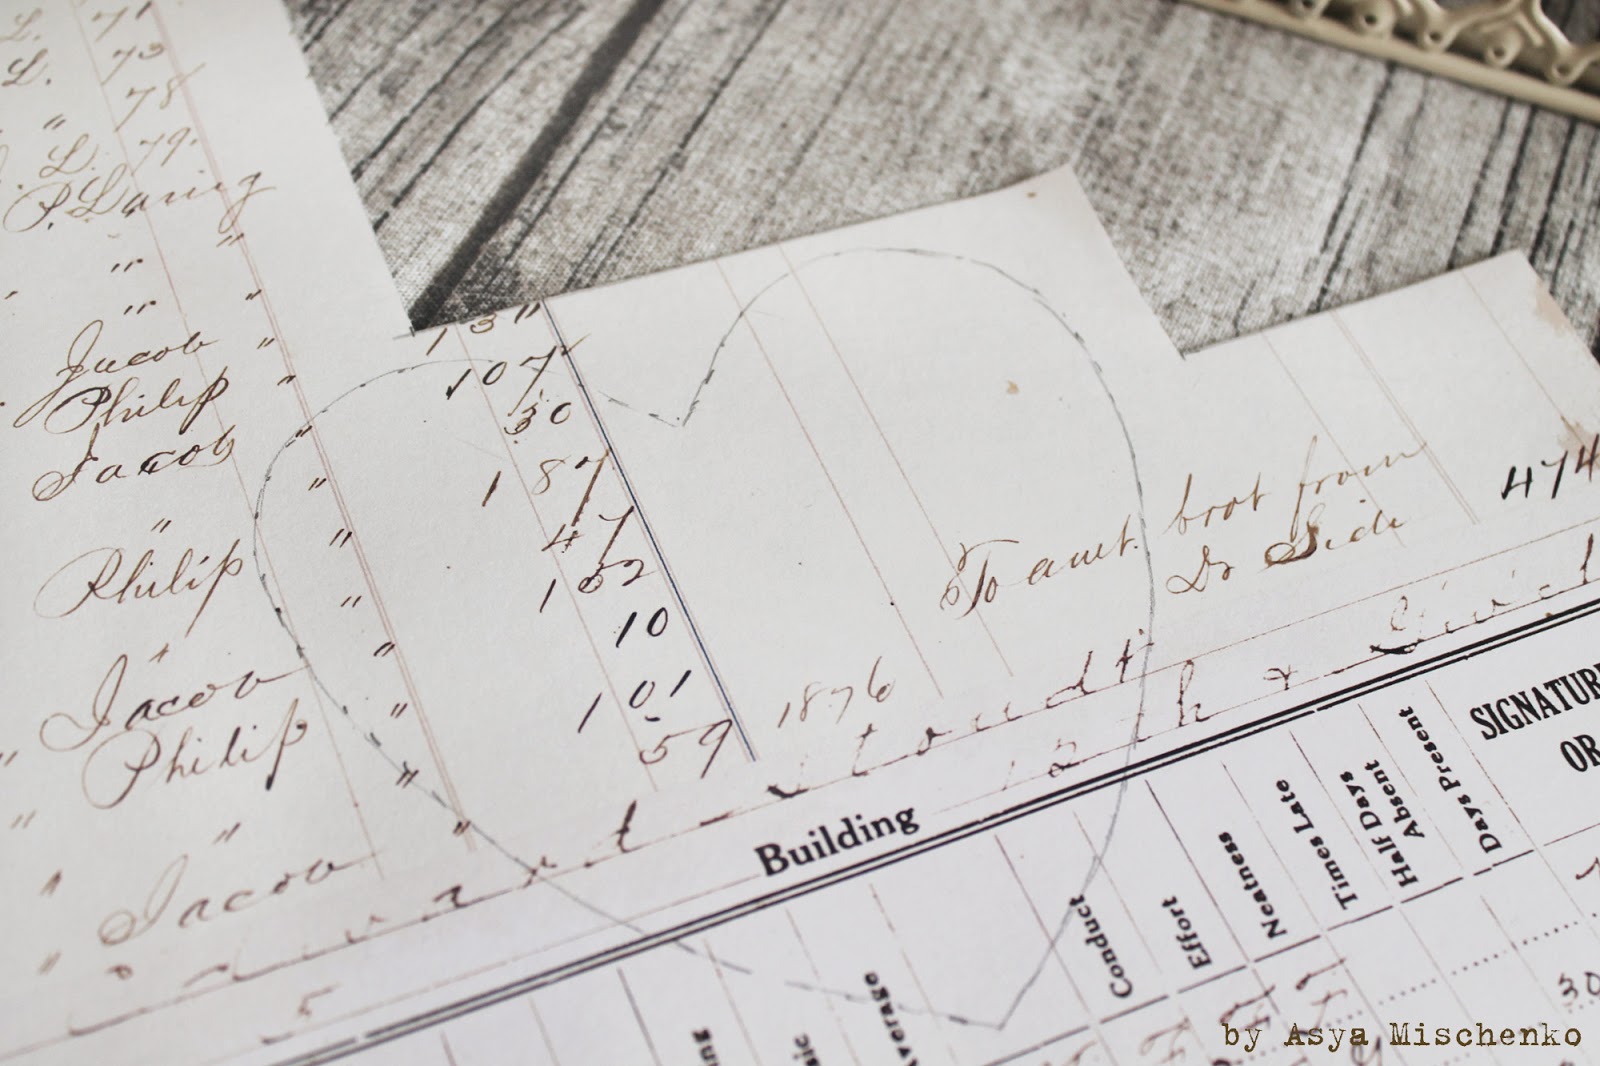 L. 71
L. 73
" 78
L. 79.
P. Laning
" "
" "
Jacob "
Philip "
Jacob "
" "
Philip "
" "
Jacob "
Philip "
" "
Jacob "
13"
107
30
187
47
132
10
101
59
1876
To amt. brot from
Dr Side
474
Stoudt
12th &
5
Building
SIGNATURE
OR
Conduct
Effort
Neatness
Times Late
Half Days
Absent
Days Present
Average
30
by Asya Mischenko